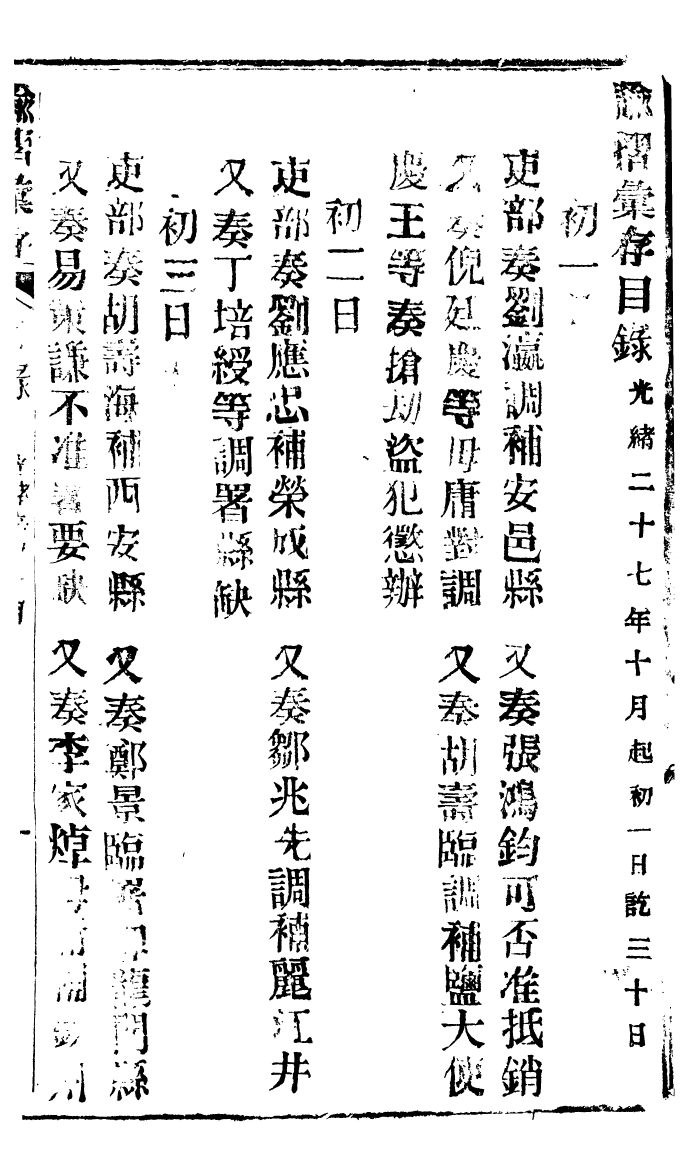 諭摺彙存目錄 光緒二十七年十月起初一日訖三十日
初一
吏部奏劉瀛調補安邑縣 又奏張鴻鈞可否准抵銷
又奏倪廷慶等毋庸對調 又奏胡壽臨調補鹽大使
慶王等奏搶劫盜犯懲辦
初二日
吏部奏劉應忠補榮成縣 又奏鄒兆先調補麗江井
又奏丁培綬等調署縣缺
初三日
吏部奏胡壽海補西安縣 又奏鄭景臨龍門縣
又奏易謙不准要缺 又奏李家焯
諭摺彙存